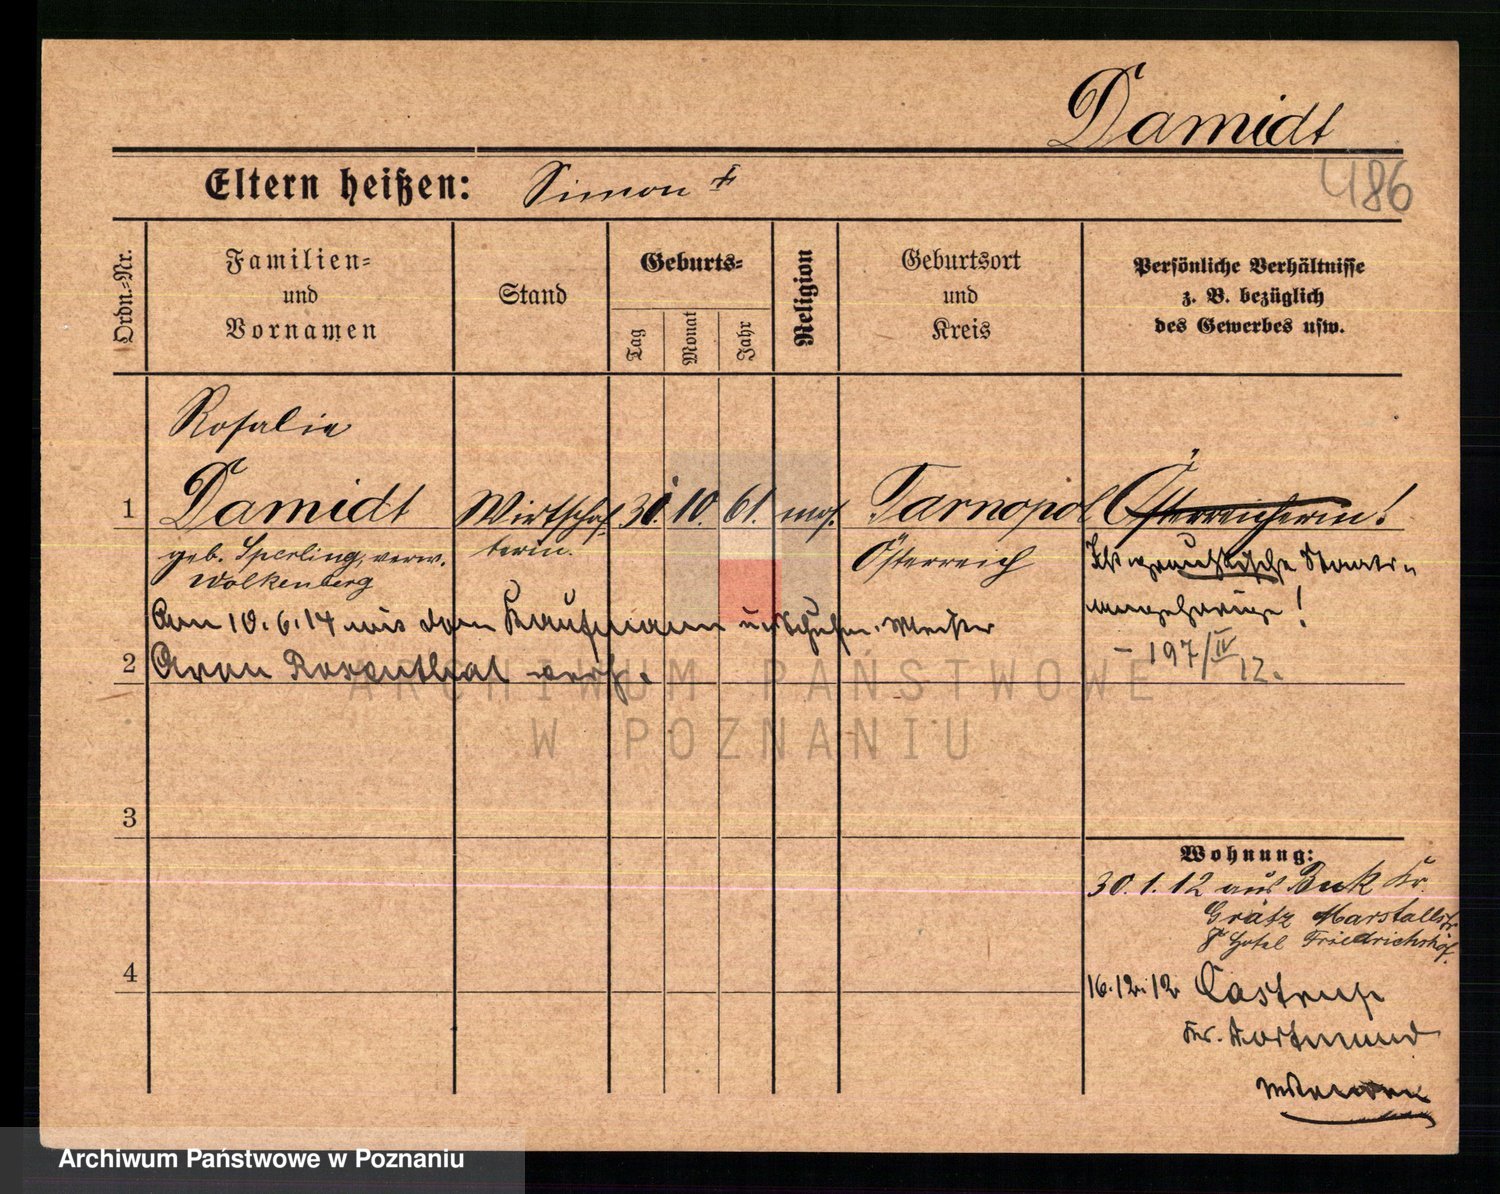 Damidt
486
Eltern heißen: Simon +
Ordn.-Nr.
Familien-
und
Vornamen
Stand
Geburts-
Tag
Monat
Jahr
Religion
Geburtsort
und
Kreis
Persönliche Verhältnisse
z. B. bezüglich
des Gewerbes usw.
Rosalie
1 Damidt Wirtschaf- 30. 10. 61. mos. Tarnopol Österreicherin!
geb. Sperling, verw. terin. Österreich
Wolkenberg
Ist preußische Staats-
angehörige!
Am 10.6.14 mit dem Kaufmann u. Schuhm. Meister
- 197/IV 12.
2 Aron Rosenthal verh.
3
4
Wohnung:
30.1.12 aus Buk Kr.
Grätz Marstallstr
8 Hotel Friedrichshof.
16.12.12 Castrop
Kr. Dortmund
ARCHIWUM PAŃSTWOWE
W POZNANIU
Archiwum Państwowe w Poznaniu